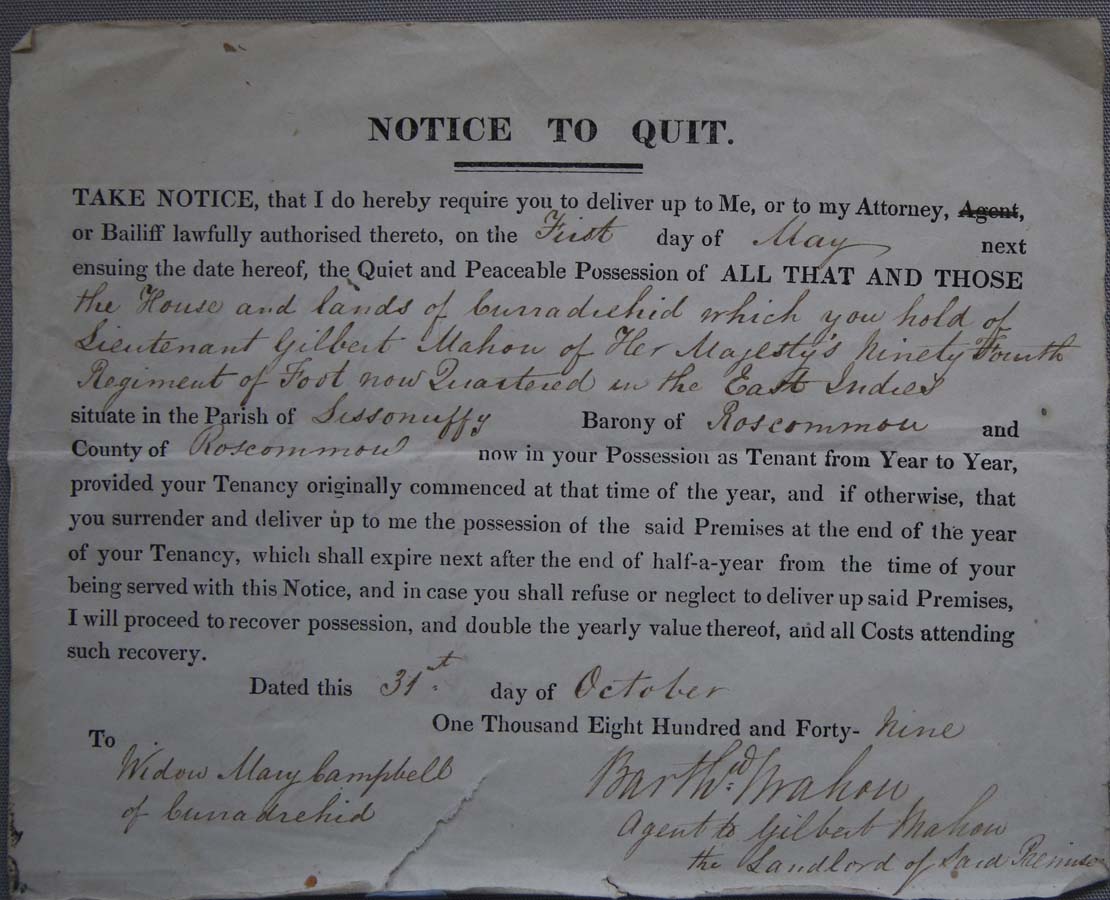 NOTICE TO QUIT.
TAKE NOTICE, that I do hereby require you to deliver up to Me, or to my Attorney, Agent,
or Bailiff lawfully authorised thereto, on the First day of May next
ensuing the date hereof, the Quiet and Peaceable Possession of ALL THAT AND THOSE
the House and lands of Curradrehid which you hold of
Lieutenant Gilbert Mahon of Her Majesty's Ninety Fourth
Regiment of Foot now Quartered in the East Indies
situate in the Parish of Lissonuffy Barony of Roscommon and
County of Roscommon now in your Possession as Tenant from Year to Year,
provided your Tenancy originally commenced at that time of the year, and if otherwise, that
you surrender and deliver up to me the possession of the said Premises at the end of the year
of your Tenancy, which shall expire next after the end of half-a-year from the time of your
being served with this Notice, and in case you shall refuse or neglect to deliver up said Premises,
I will proceed to recover possession, and double the yearly value thereof, and all Costs attending
such recovery.
Dated this 31st day of October
One Thousand Eight Hundred and Forty- Nine
To
Widow Mary Campbell
of Curradrehid
Barth. Mahon
Agent to Gilbert Mahon
the Landlord of Said Premises